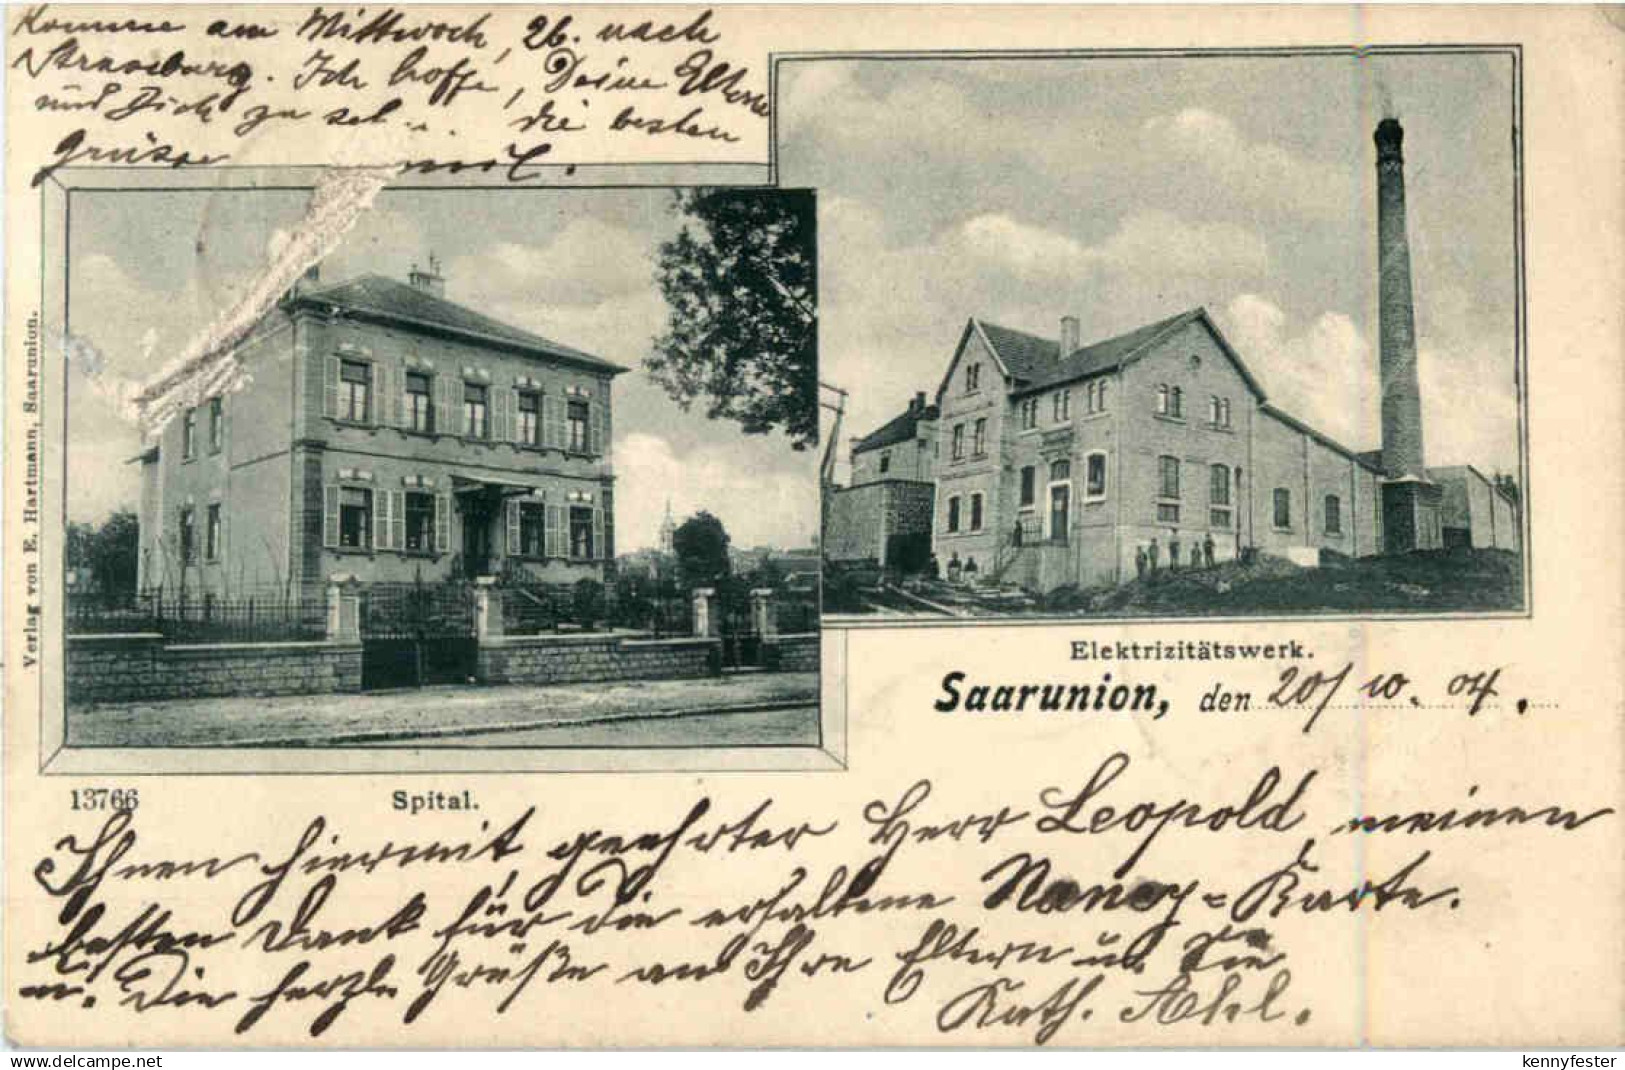 Komme am Mittwoch, 26. nach
Strassburg. Ich hoffe, Deine Eltern
und Dich zu seh... die besten
Grüsse
Verlag von E. Hartmann, Saarunion.
Elektrizitätswerk.
Saarunion, den 20/10.04.
13766 Spital.
Ihnen hiermit, geehrter Herr Leopold, meinen
besten Dank für die erhaltene Nancy-Karte.
u. Die herzl. Grüße an Ihre Eltern u. Sie
Kath. Ahl.
www.delcampe.net
kennyfester